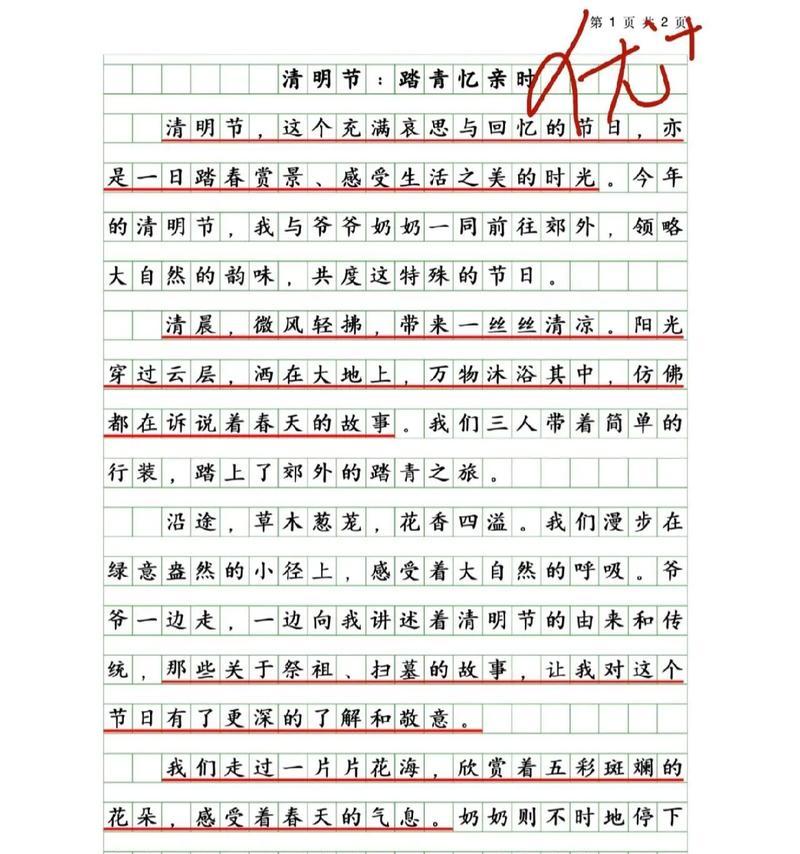 第 1 页 共 2 页
优+
清明节：踏青忆亲时
清明节，这个充满哀思与回忆的节日，亦
是一日踏春赏景、感受生活之美的时光。今年
的清明节，我与爷爷奶奶一同前往郊外，领略
大自然的韵味，共度这特殊的节日。
清晨，微风轻拂，带来一丝丝清凉。阳光
穿过云层，洒在大地上，万物沐浴其中，仿佛
都在诉说着春天的故事。我们三人带着简单的
行装，踏上了郊外的踏青之旅。
沿途，草木葱茏，花香四溢。我们漫步在
绿意盎然的小径上，感受着大自然的呼吸。爷
爷一边走，一边向我讲述着清明节的由来和传
统，那些关于祭祖、扫墓的故事，让我对这个
节日有了更深的了解和敬意。
我们走过一片片花海，欣赏着五彩斑斓的
花朵，感受着春天的气息。奶奶则不时地停下